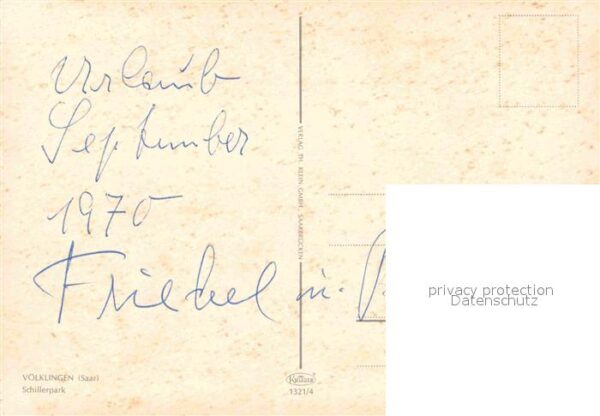 Urlaub
September
1970
Friedel u.
VERLAG TH. KLEIN GMBH., SAARBRÜCKEN
privacy protection
Datenschutz
VÖLKLINGEN (Saar)
Schillerpark
1321/4